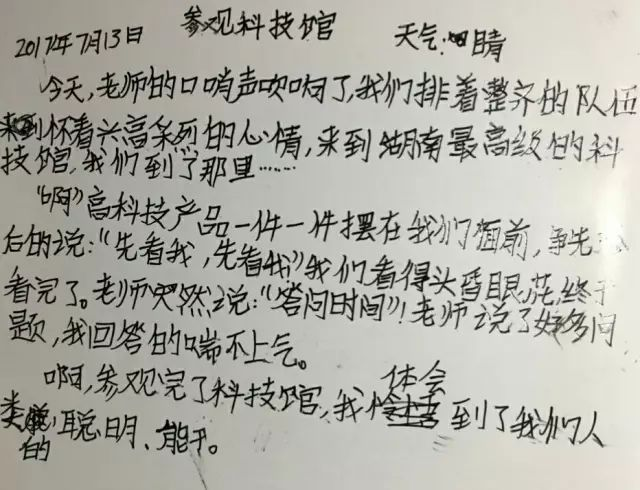 2017年7月13日 参观科技馆 天气:晴
今天,老师的口哨声吹响了,我们排着整齐的队伍
怀着兴高采烈的心情,来到湖南最高级的科
技馆,我们到了那里……
“啊”高科技产品一件一件摆在我们面前,争先
后的说:“先看我,先看我”我们看得头昏眼花,终于
看完了。老师突然说:“答问时间”!老师说了好多问
题,我回答的喘不上气。
啊,参观完了科技馆,我体会到了我们人
类的聪明、能干。